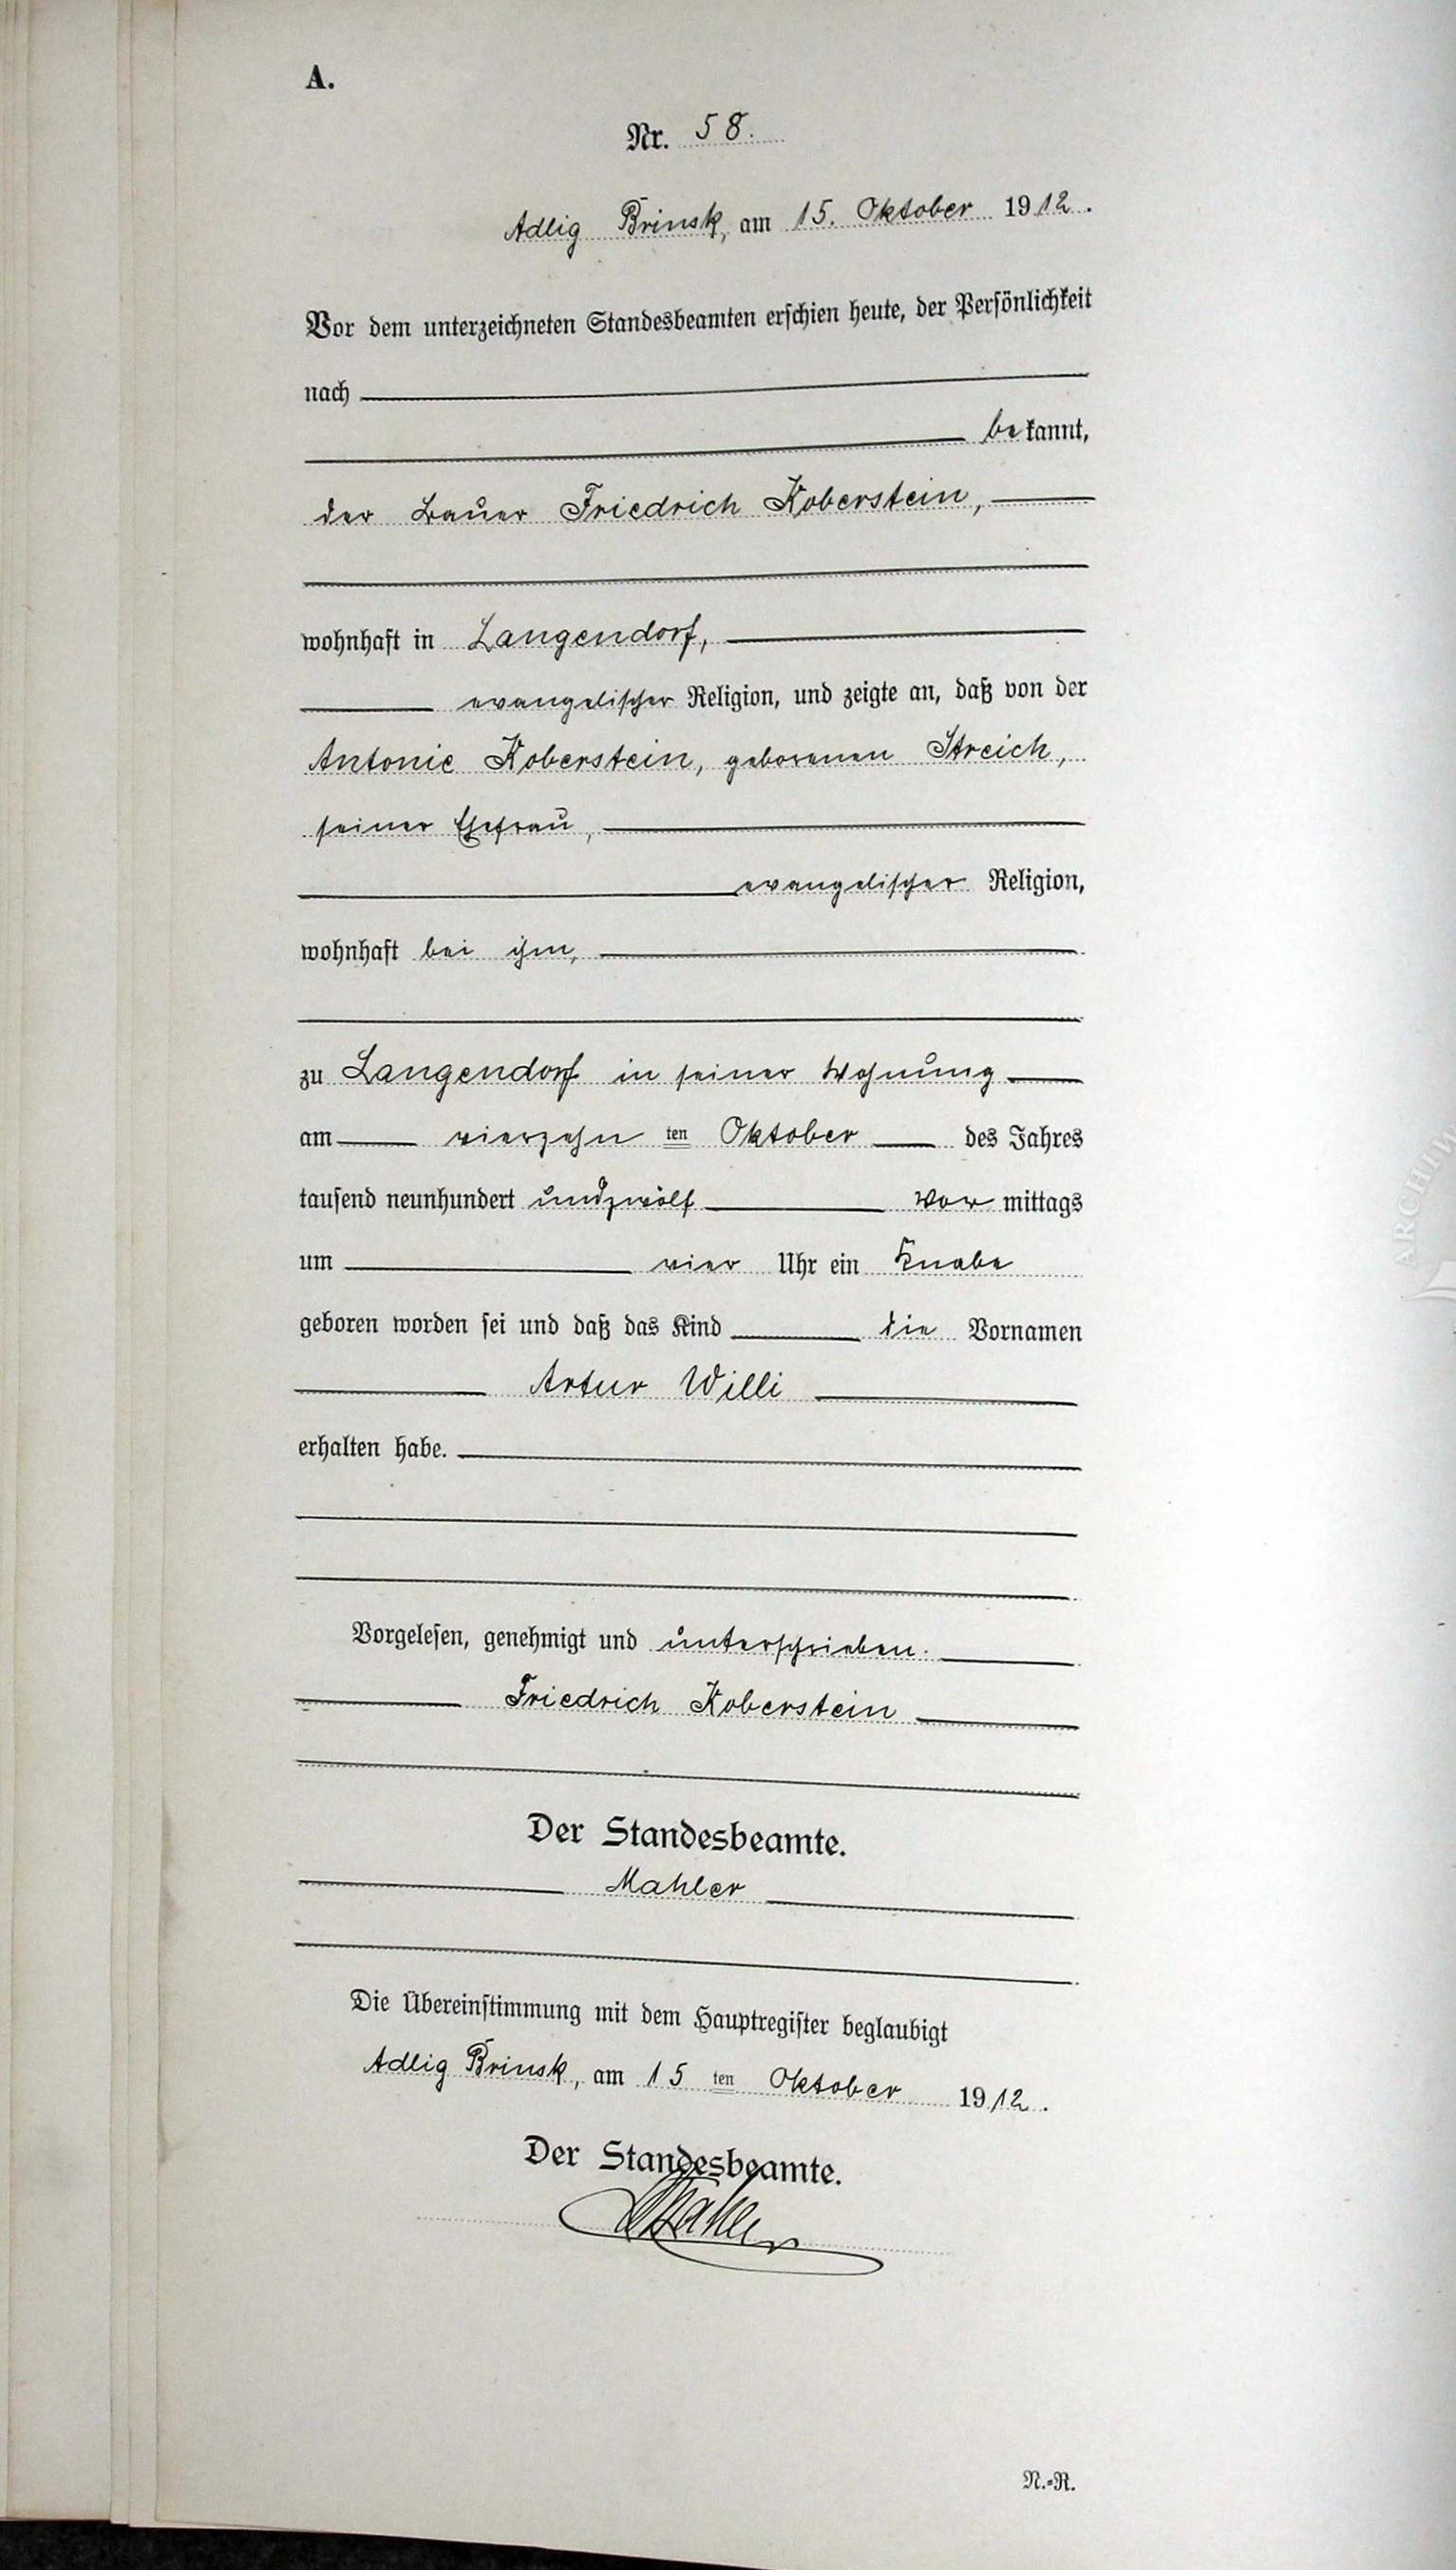 A.
Nr. 58.
Adlig Brinsk, am 15. Oktober 1912.
Vor dem unterzeichneten Standesbeamten erschien heute, der Persönlichkeit
nach
bekannt,
der Bauer Friedrich Koberstein,
wohnhaft in Langendorf,
evangelischer Religion, und zeigte an, daß von der
Antonie Koberstein, geborenen Streich,
seiner Ehefrau,
evangelischer Religion,
wohnhaft bei ihm,
zu Langendorf in seiner Wohnung
am vierzehn ten Oktober des Jahres
tausend neunhundert undzwölf Vor mittags
um vier Uhr ein Knabe
geboren worden sei und daß das Kind die Vornamen
Artur Willi
erhalten habe.
Vorgelesen, genehmigt und unterschrieben.
Friedrich Koberstein
Der Standesbeamte.
Mahler
Die Übereinstimmung mit dem Hauptregister beglaubigt
Adlig Brinsk, am 15 ten Oktober 1912.
Der Standesbeamte.
Mahler
N.=R.
ARCHIW